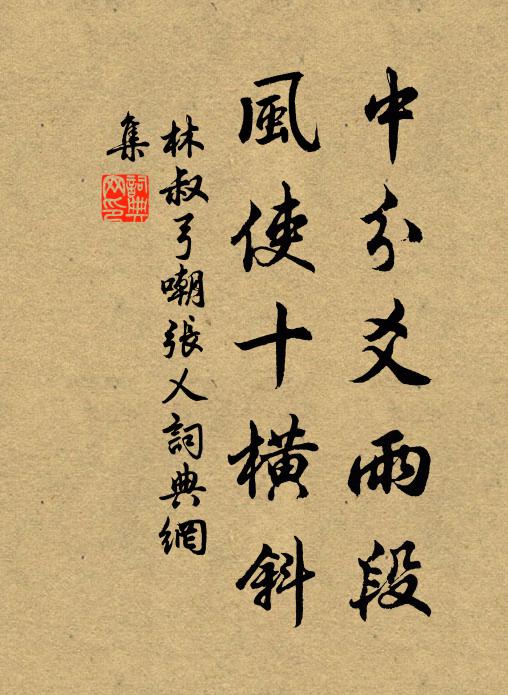 中分爻兩段
風使十橫斜
林叔弓嘲張乂詞典網
集
詞典网印